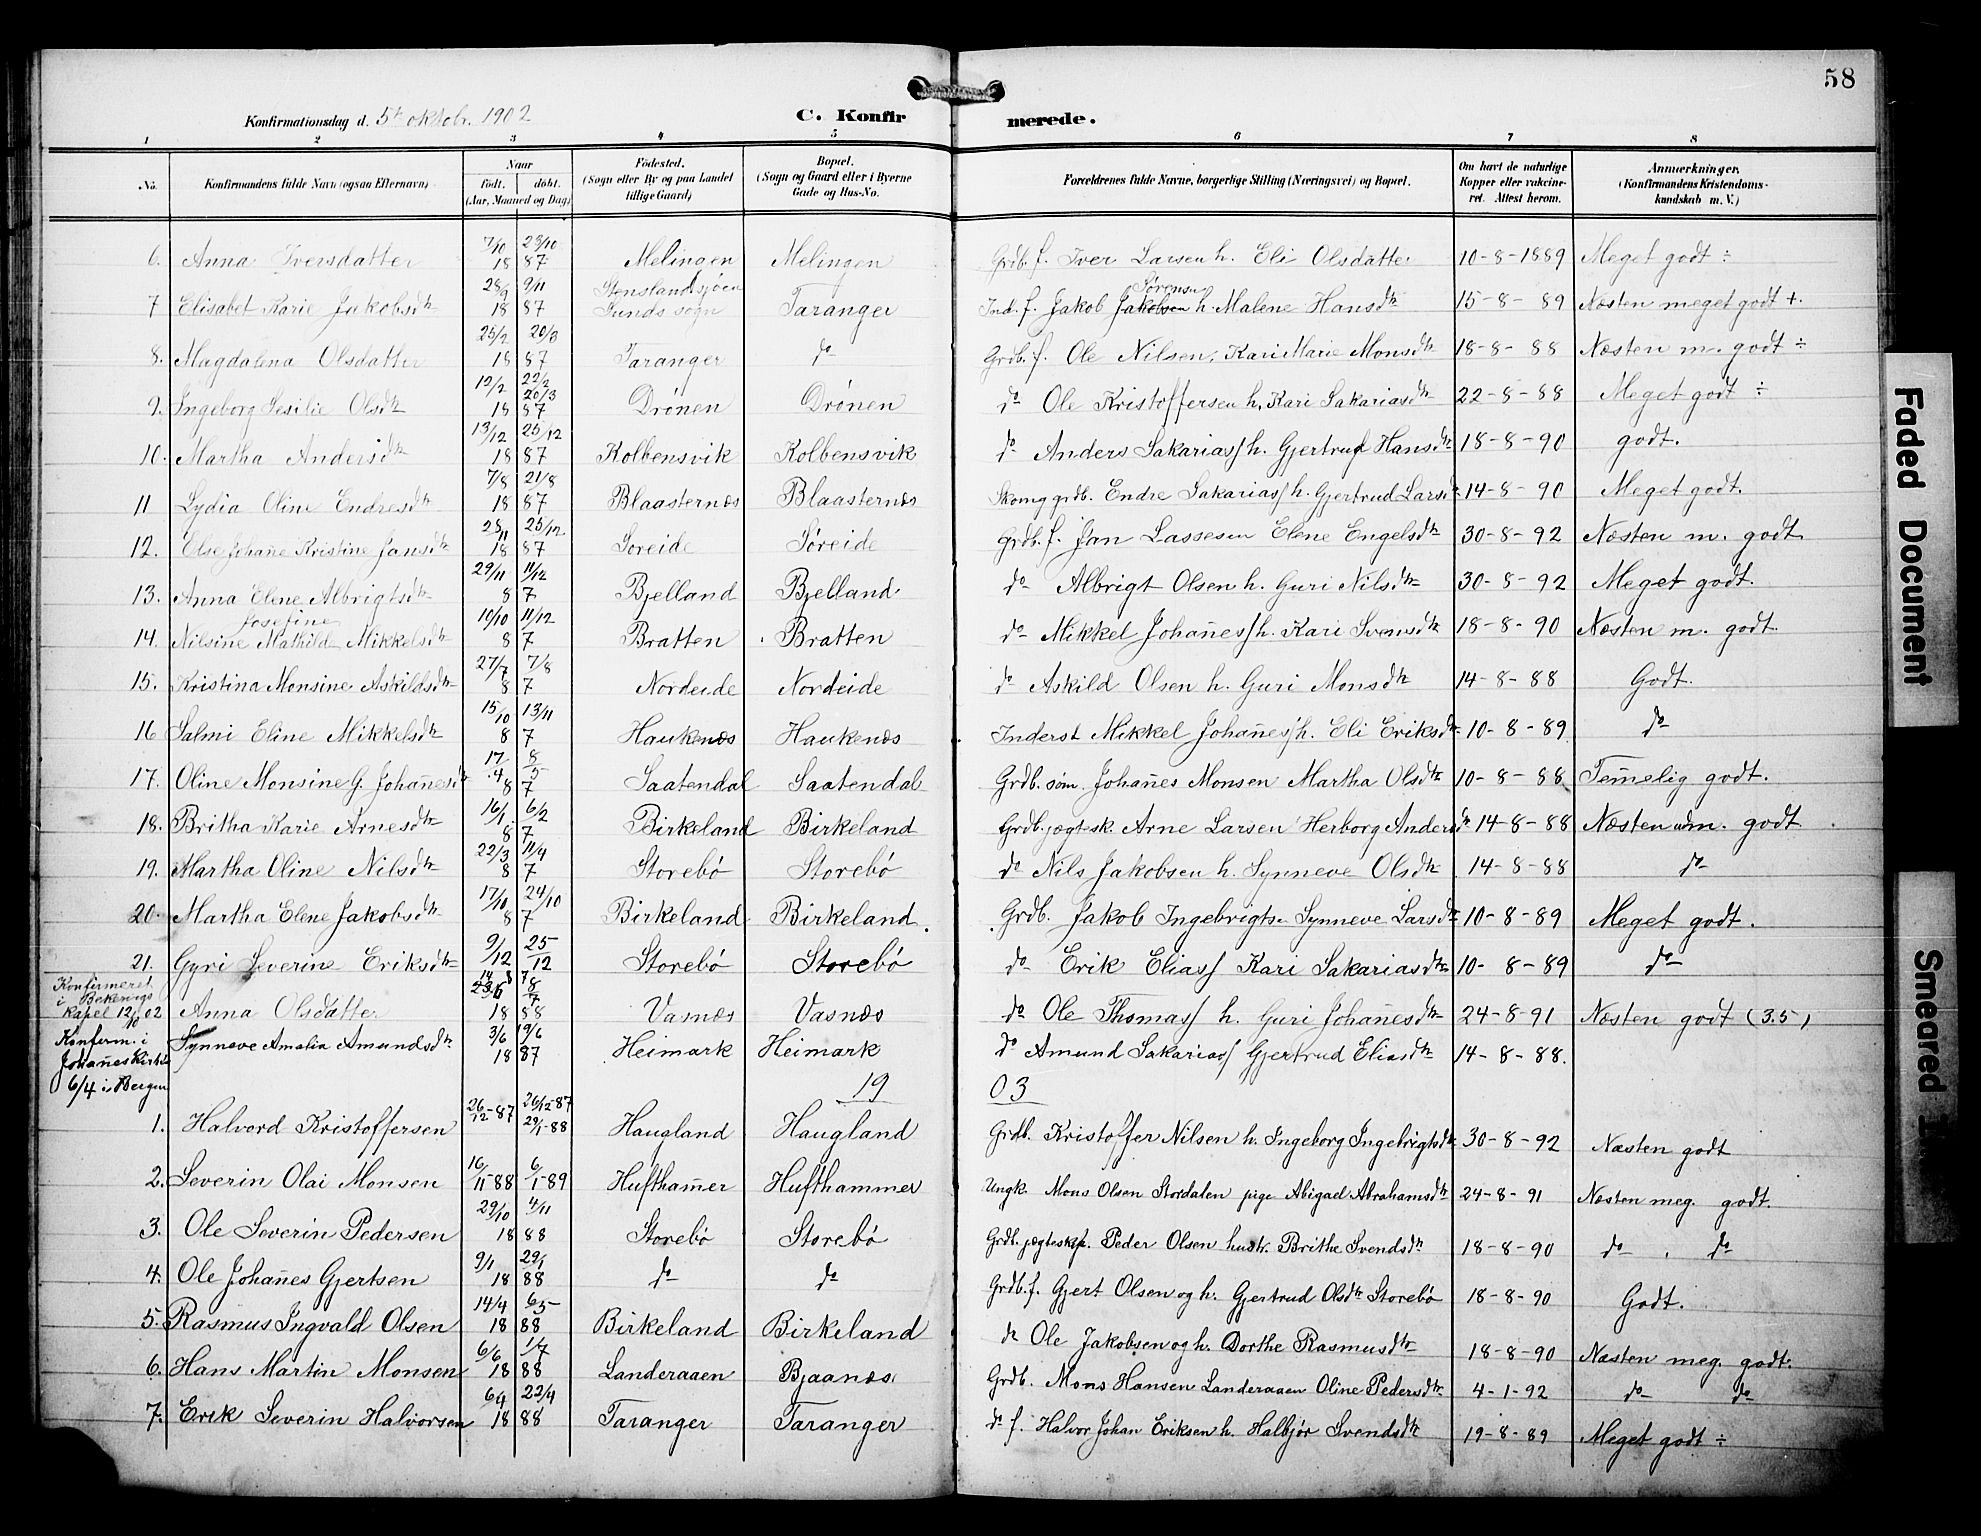 58
Konfirmationsdag d. 5t oktobr. 1902 C. Konfirmerede.
1 2 3 4 5 6 7 8
No. Konfirmandens fulde Navn (ogsaa Efternavn). Naar födt. döbt. (Aar, Maaned og Dag) Födested. (Sogn eller By og paa Landet tillige Gaard) Bopæl. (Sogn og Gaard eller i Byerne Gade og Hus-No. Forældrenes fulde Navne, borgerlige Stilling (Næringsvei) og Bopæl. Om havt de naturlige Kopper eller vakcineret. Attest herom. Anmærkninger. (Konfirmandens Kristendomskundskab m. V.)
6. Anna Iversdatter 7/10 23/10 18 87 Melingen Melingen Grdb. f. Iver Larsen h. Eli Olsdatter 10-8-1889 Meget godt ÷
7 Elisabet Karie Jakobsdtr 28/9 9/11 18 87 Stenslandsjöen Funds sogn Taranger Ind. f. Jakob Jakobsen Sørensen h. Malene Hansdtr 15-8-89 Næsten meget godt +.
8. Magdalena Olsdatter 25/2 20/3 18 87 Taranger do Grdb. f. Ole Nilsen, Kari Marie Monsdtr 18-8-88 Næsten m. godt ÷
9. Ingeborg Sesilie Olsdtr 12/2 22/2 20/3 18 87 Drönen Drönen do Ole Kristoffersen h. Kari Sakariasdtr 22-8-88 Meget godt ÷
10. Martha Andersdtr 13/12 25/12 18 87 Kolbensvik Kolbensvik do Anders Sakarias/ h. Gjertrud Hansdtr 18-8-90 godt.
11 Lydia Oline Endresdtr 7/8 21/8 18 87 Blaasternæs Blaasternæs Skomg grdb. Endre Sakarias/ h. Gjertrud Larsd 14-8-90 Meget godt.
12. Else Johañe Kristine Jansdtr 28/11 25/12 18 87 Söreide Söreide Grdb. f. Jan Lassesen Elene Engelsdtr 30-8-92 Næsten m. godt
13. Anna Elene Albrigtsdtr 29/11 11/12 8 7 Bjelland Bjelland do Albrigt Olsen h. Guri Nilsdtr 30-8-92 Meget godt.
14. Nilsine Josefine Mathilde Mikkelsdtr 10/10 11/12 8 7 Bratten Bratten do Mikkel Johañes/ h. Kari Svensdtr 18-8-90 Næsten m. godt
15. Kristina Monsine Askildsdtr 27/7 7/8 8 7 Nordeide Nordeide do Askild Olsen h. Guri Monsdtr 14-8-88 Godt.
16 Salmi Eline Mikkelsdtr 15/10 13/11 8 7 Haukenæs Haukenæs Inderst Mikkel Johañes/ h. Eli Eriksdtr 10-8-89 do
17. Oline Monsine G. Johañesdtr 17/4 8/5 8 7 Saatendal Saatendal Grdb. söm. Johañes Monsen Martha Olsdtr 10-8-88 Temelig godt.
18. Britha Karie Arnesdtr 16/1 6/2 8 7 Birkeland Birkeland Grdb. jægtesk. Arne Larsen Herborg Andersdtr 14-8-88 Næsten m. godt
19. Martha Oline Nilsdtr 22/3 11/4 8 7 Storebö Storebö do Nils Jakobsen h. Synneve Olsdtr 14-8-88 do
20. Martha Elene Jakobsdtr 17/10 24/10 8 7 Birkeland Birkeland Grdb. Jakob Ingebrigts. Synneve Larsdtr 10-8-89 Meget godt.
21. Gyri Severine Eriksdtr 9/12 25/12 Storebö Storebö do Erik Elias/ Kari Sakariasdtr 10-8-89 do
Konfirmeret i Bekervigs Kapel 12/10 02 Anna Olsdatter 18 88 Vasnæs Vasnæs do Ole Thomas/ h. Guri Johañesdtr 24-8-91 Næsten godt (3.5)
Konferm. i Johañes Kirke 6/4 i Bergen Synneve Amalia Amundsdtr 3/6 19/6 18 87 Heimark Heimark do Amund Sakarias/ Gjertrud Eliasdtr 14-8-88.
19 03
1. Halvord Kristoffersen 26/12-87 26/12-87 29/1-88 Haugland Haugland Grdb. Kristoffer Nilsen h. Ingeborg Ingebrigtsdtr 30-8-92 Næsten godt
2. Severin Olai Monsen 16/11-88 6/1-89 Hufthamer Hufthammer Ungk. Mons Olsen Stordalen pige Abigael Abrahamsdtr 24-8-91 Næsten meg. godt.
3. Ole Severin Pedersen 29/10 4/11 18 88 Storebö Storebö Grdb. jægteskp. Peder Olsen hustr. Brithe Svendsdtr 18-8-90 do do
4. Ole Johañes Gjertsen 9/1 29/1 18 88 do do Grdb. f. Gjert Olsen og h. Gjertrud Olsdtr Storebö 18-8-90 Godt.
5. Rasmus Ingvald Olsen 14/4 6/5 18 88 Birkeland Birkeland do Ole Jakobsen og h. Dorthe Rasmusdtr 18-8-90 Næsten meg. godt.
6. Hans Martin Monsen 6/6 1/7 18 88 Landeraaen Bjaanæs Grdb. Mons Hansen Landeraaen Oline Pedersdtr 4-1-92 do do
7. Erik Severin Halvorsen 6/4 22/4 18 88 Taranger Taranger do f. Halvor Johan Eriksen h. Halbjör Svendsdtr 19-8-89 Meget godt ÷
Faded Document
Smeared